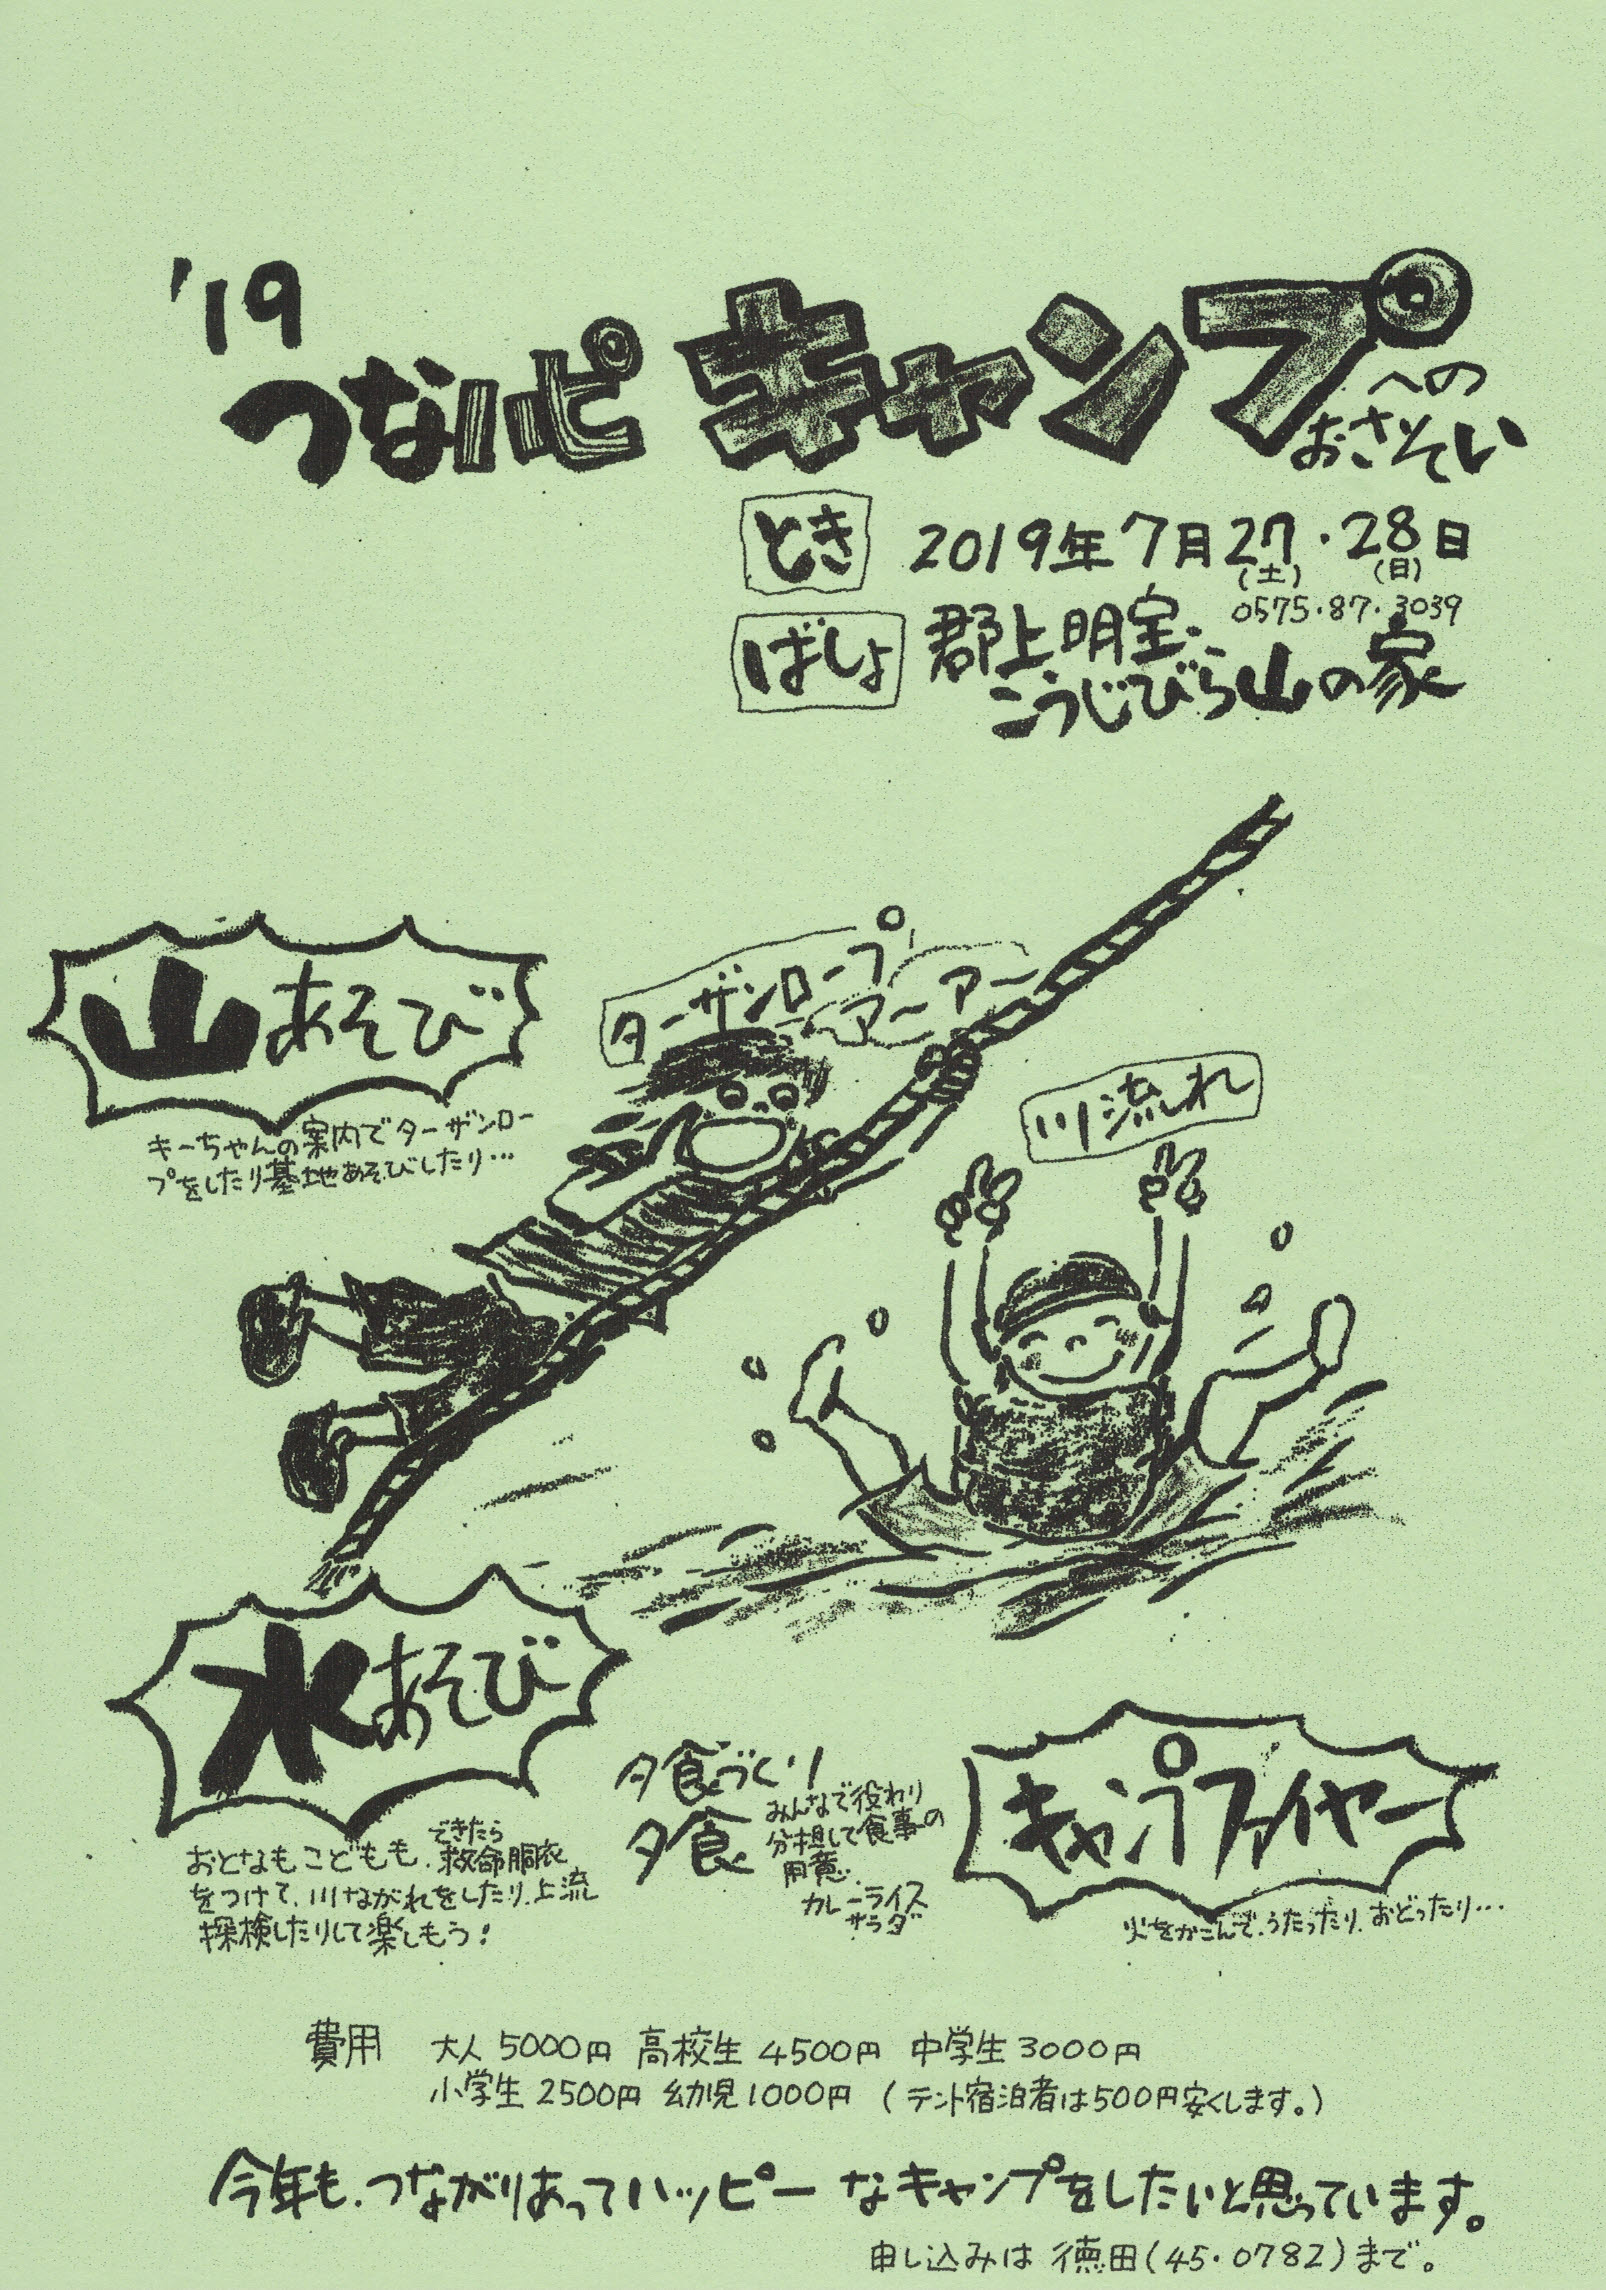 '19
つなハピ キャンプへの
おさそい
とき 2019年7月27・28日
(土) (日)
0575・87・3039
ばしょ 郡上明宝、
こうじびら山の家
ターザンロープ
アーアー
山あそび
キーちゃんの案内でターザンロー
プをしたり基地あそびしたり…
川流れ
水あそび
おとなもこどもも、できたら救命胴衣
をつけて、川ながれをしたり、上流
探検したりして楽しもう!
夕食づくり
夕食
みんなで役わり
分担して食事の
用意。
カレーライス
サラダ
キャンプファイヤー
火をかこんで、うたったり、おどったり…
費用 大人 5000円 高校生 4500円 中学生 3000円
小学生 2500円 幼児 1000円 (テント宿泊者は500円安くします。)
今年も、つながりあってハッピーなキャンプをしたいと思っています。
申し込みは 徳田(45・0782)まで。